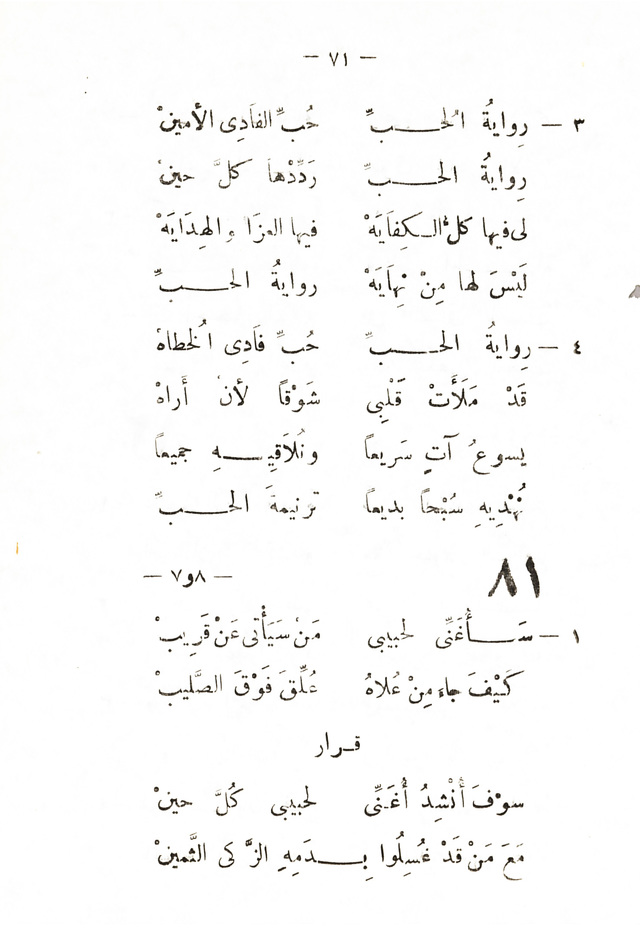 — ٧١ —
٣ — رِوايةُ الحــبِّ حُبِّ الفَادِى الأمينْ
رِوايةُ الحــبِّ رَدِّدْها كلَّ حينْ
لى فيها كلُّ الـكِفَايَهْ فيها العزَا والهِدَايَهْ
لَيْسَ لها مِنْ نِهايَهْ روايةُ الحــبِّ
٤ — رِوايةُ الحــبِّ حُبِّ فَادِى الخطاهْ
قَدْ مَلَأَتْ قَلْبِى شَوْقًا لأنْ أَراهْ
يسوعُ آتٍ سَريعاً ونُلاَقِيــهِ جميعاً
نُهْدِيهِ سُبْحاً بديعاً ترنيمةَ الحــبِّ
٨١ — ٨و٧ —
١ — سَـــأُغَنِّى لحبيبى مَنْ سَيَأْتى عَنْ قَرِيبْ
كَيْفَ جاءَ مِنْ عُلاهُ عُلِّقَ فَوْقَ الصَّليبْ
قــرار
سوْفَ أُنْشِدُ أُغَنِّى لحبيبى كُلَّ حينْ
مَعَ مَنْ قَدْ غُسِلُوا بِــدَمِهِ الزَّكى الثَّمينْ